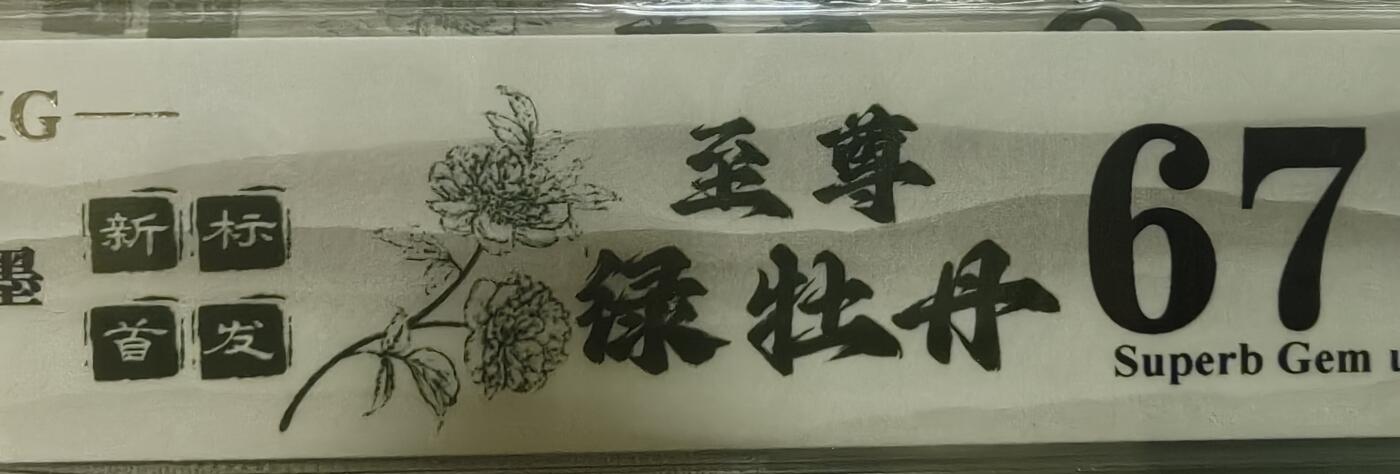 G
墨
新标
首发
至尊
绿牡丹
67
Superb Gem